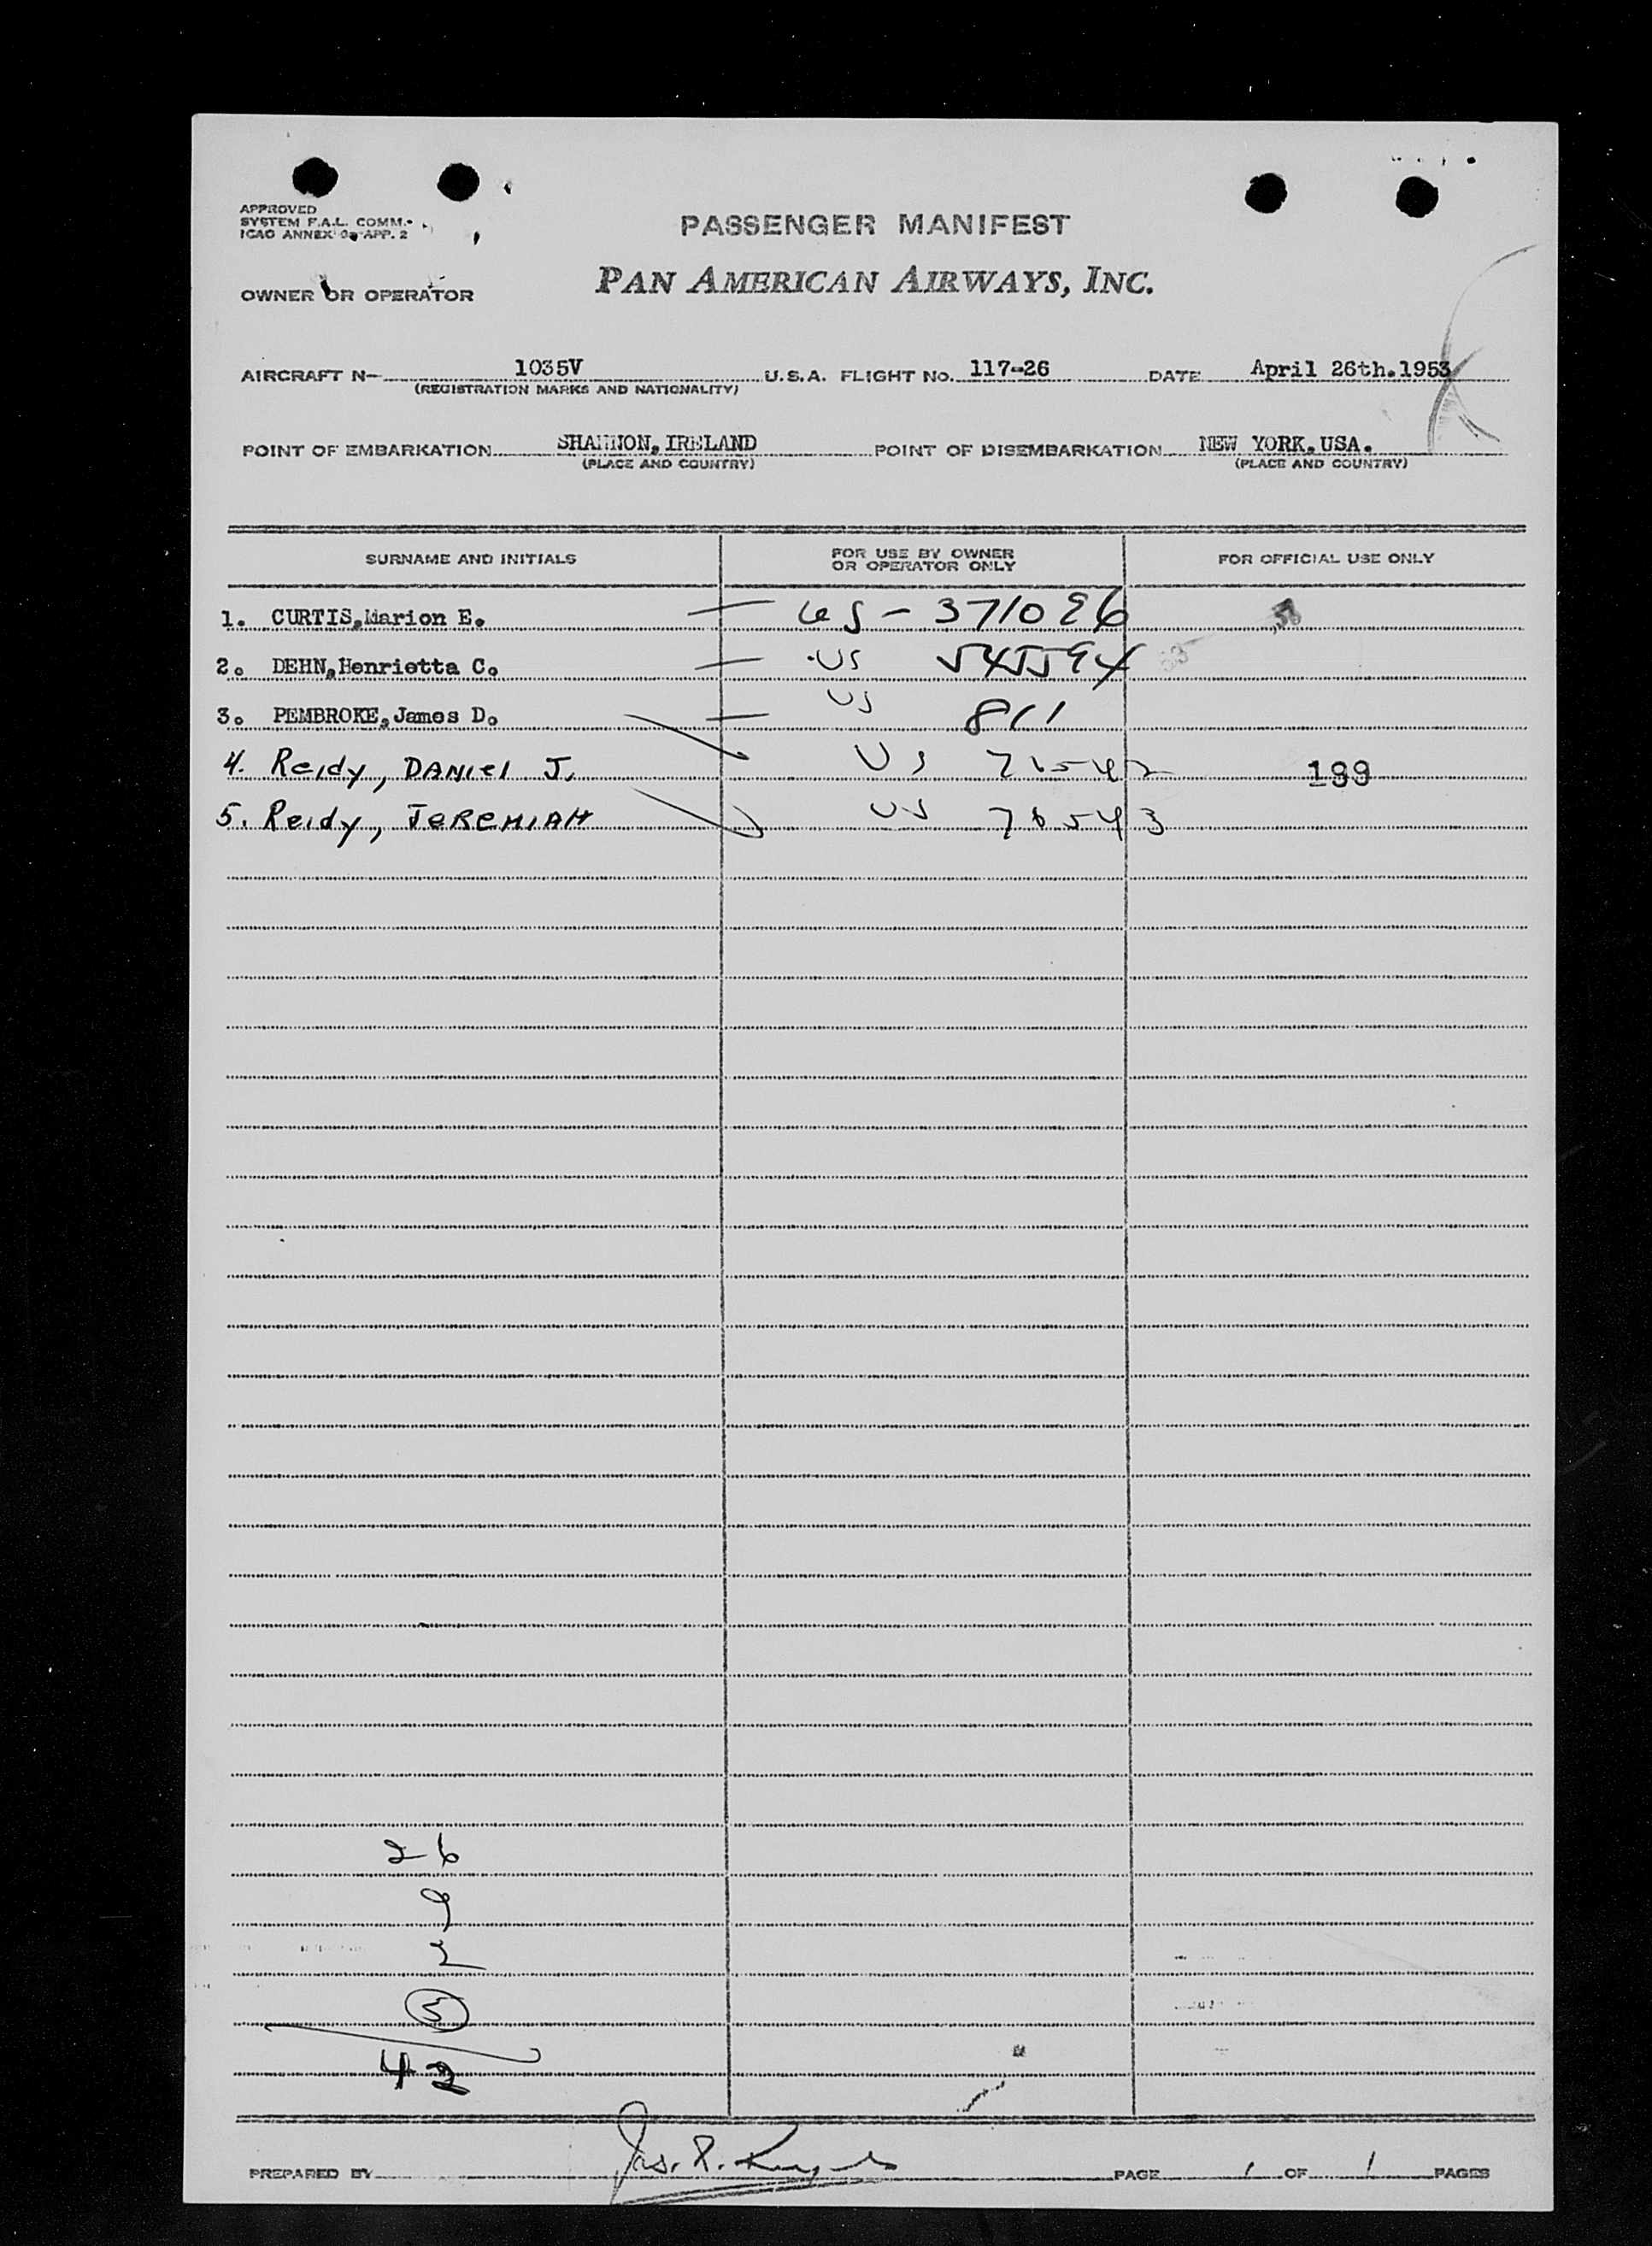 APPROVED
SYSTEM F.A.L. COMM.-
ICAO ANNEX 9, APP. 2
PASSENGER MANIFEST
OWNER OR OPERATOR PAN AMERICAN AIRWAYS, INC.
AIRCRAFT N- 1035V U.S.A. FLIGHT NO. 117-26 DATE April 26th.1953
(REGISTRATION MARKS AND NATIONALITY)
POINT OF EMBARKATION SHANNON, IRELAND POINT OF DISEMBARKATION NEW YORK, USA.
(PLACE AND COUNTRY) (PLACE AND COUNTRY)
SURNAME AND INITIALS FOR USE BY OWNER OR OPERATOR ONLY FOR OFFICIAL USE ONLY
1. CURTIS, Marion E. — US - 371086
2. DEHN, Henrietta C. — US 545594
3. PEMBROKE, James D. — US 811
4. Reidy, DANIEL J. US 76542 199
5. Reidy, JEREMIAH US 76543
26
9
2
5
42
PREPARED BY Jas. R. PAGE 1 OF 1 PAGES